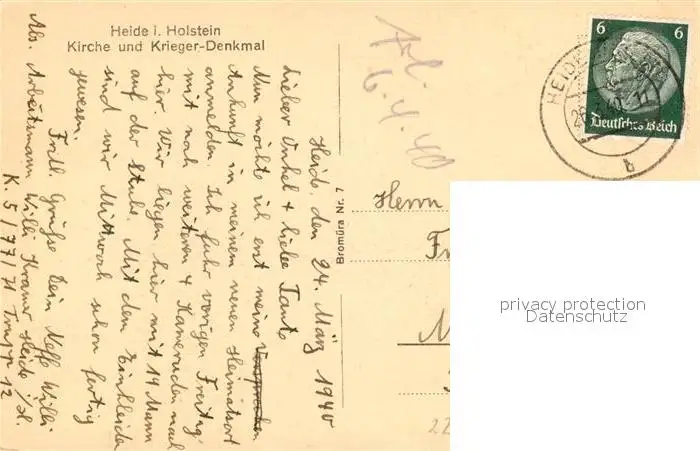 Heide i. Holstein
Kirche und Krieger-Denkmal
Heide, den 24. März 1940
Lieber Onkel + liebe Tante
Nun möchte ich erst meine
Ankunft in meinem neuen Heimatsort
anmelden. Ich fuhr vorigen Freitag
mit noch weiteren 4 Kameraden nach
hier. Wir liegen hier mit 19 Mann
auf der Stube. Mit dem Einkleiden
sind wir Mittwoch schon fertig
gewesen.
Frdl. Grüße Dein Neffe Willi
Abs. Arbeitsmann Willi Kramer Heide i/H.
K. 5/77/71 Trupp 12
Bromüra Nr. 7
6.4.40
HEIDE
b
6 6
Deutsches Reich
Herrn
privacy protection
Datenschutz